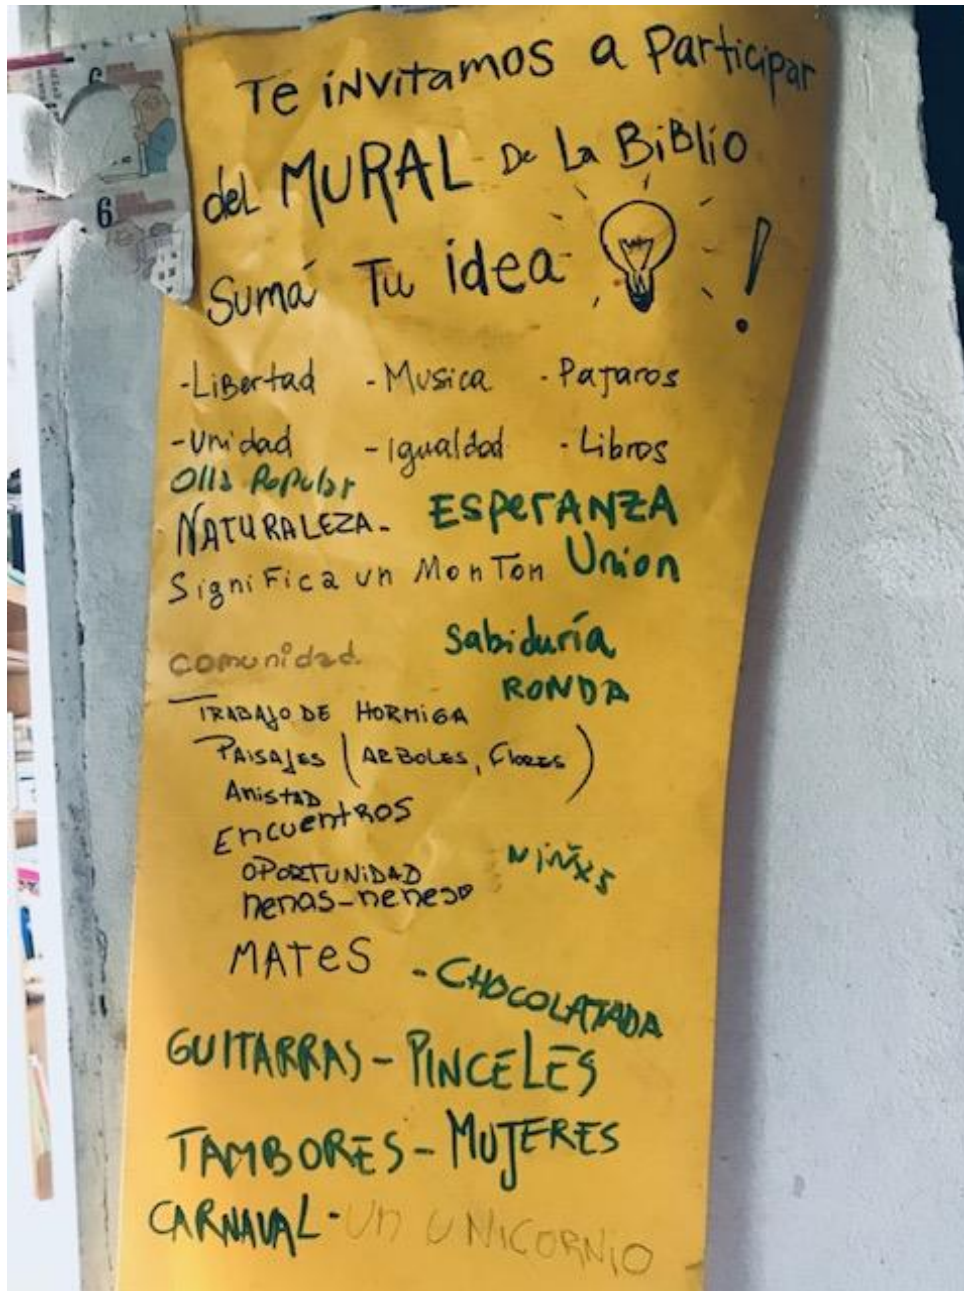 Te invitamos a Participar
del MURAL De La BiBlio
Sumá Tu idea !
-LiBertad -Musica -Pajaros
-Unidad -Igualdad -Libros
Olla Popular
NATURALEZA- ESPERANZA
Significa un MonTon Union
comunidad Sabiduría
RONDA
TRABAJO DE HORMIGA
PAISAJES (ARBOLES, Flores)
Amistad
Encuentros
OPORTUNIDAD niñxs
nenas-nenes
MATeS -CHOCOLATADA
GUITARRAS-PINCELES
TAMBORES-MUJERES
CARNAVAL-Un UNICORNIO
6